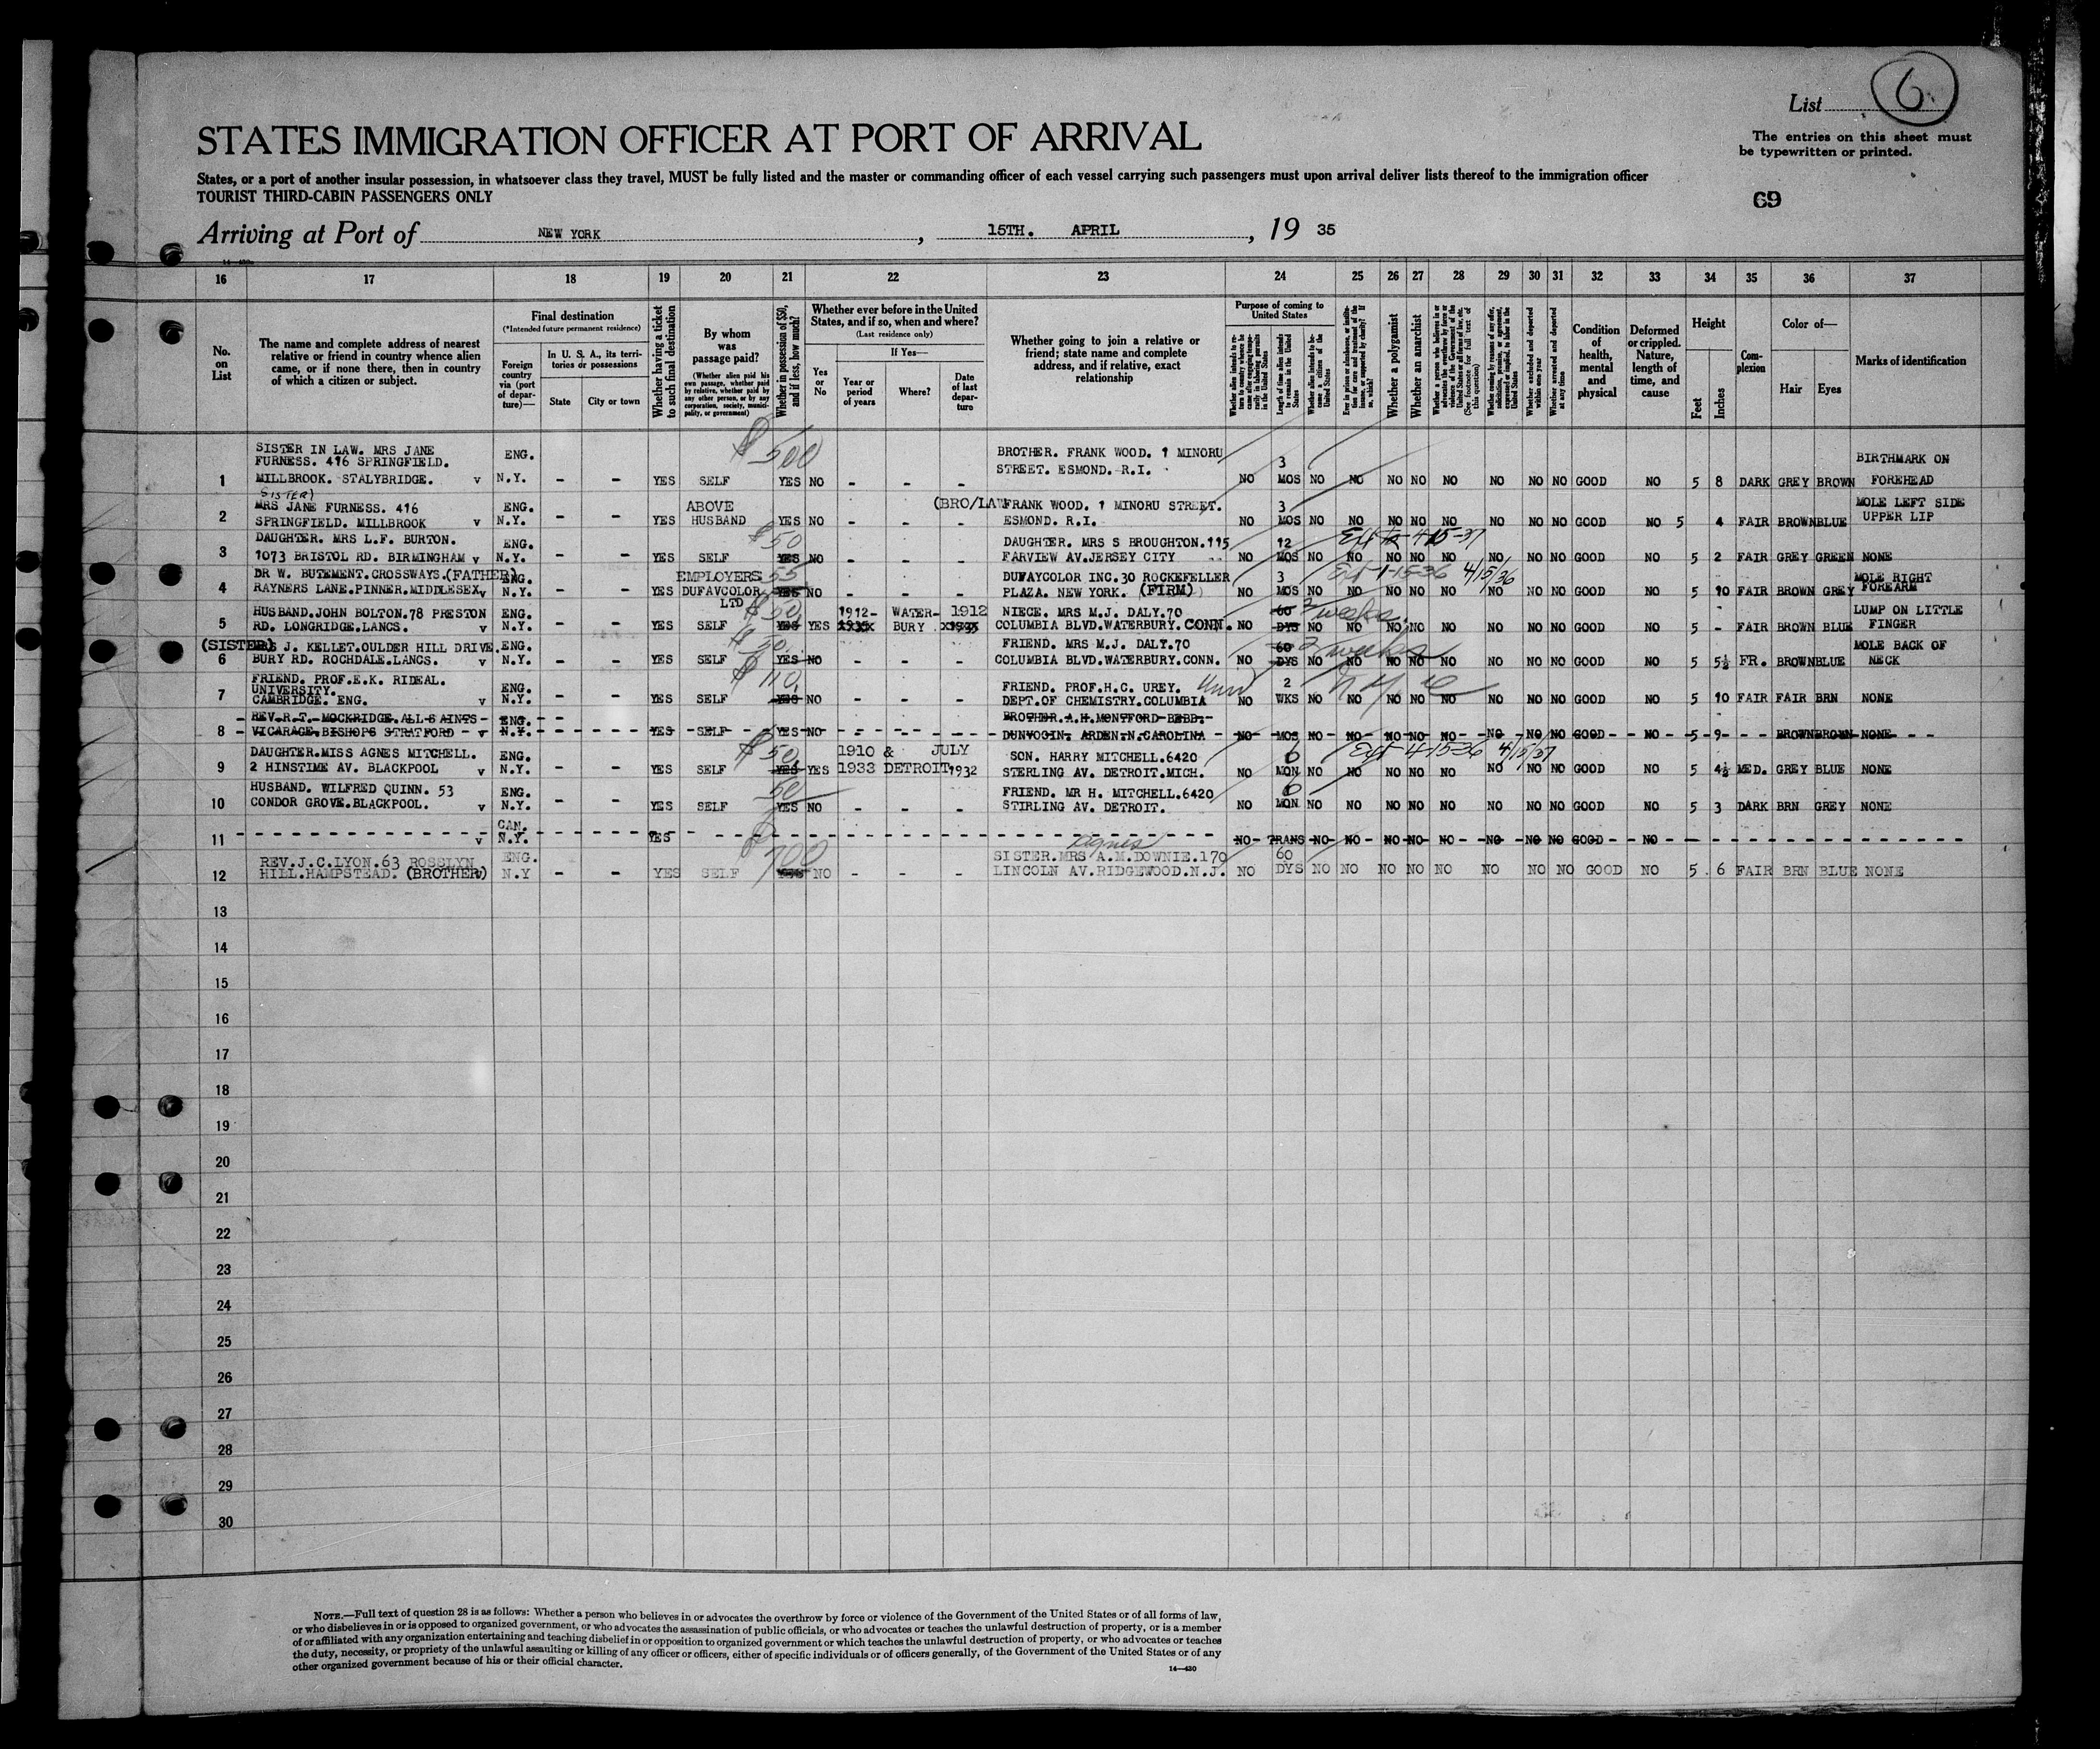 List 6
The entries on this sheet must
be typewritten or printed.
STATES IMMIGRATION OFFICER AT PORT OF ARRIVAL
States, or a port of another insular possession, in whatsoever class they travel, MUST be fully listed and the master or commanding officer of each vessel carrying such passengers must upon arrival deliver lists thereof to the immigration officer
TOURIST THIRD-CABIN PASSENGERS ONLY
69
Arriving at Port of NEW YORK, 15TH. APRIL, 19 35
16 17 18 19 20 21 22 23 24 25 26 27 28 29 30 31 32 33 34 35 36 37
No. on List
The name and complete address of nearest relative or friend in country whence alien came, or if none there, then in country of which a citizen or subject.
Final destination
(*Intended future permanent residence)
Foreign country via (port of departure)—
In U. S. A., its territories or possessions
State
City or town
Whether having a ticket to such final destination
By whom was passage paid?
(Whether alien paid his own passage, whether paid by relative, whether paid by any other person, or by any corporation, society, municipality, or government)
Whether in possession of $50, and if less, how much?
Whether ever before in the United States, and if so, when and where?
(Last residence only)
Yes or No
If Yes—
Year or period of years
Where?
Date of last departure
Whether going to join a relative or friend; state name and complete address, and if relative, exact relationship
Purpose of coming to United States
Length of time alien intends to remain in the United States
Whether a polygamist
Whether an anarchist
(See footnote for full text of this question)
Whether excluded and deported within one year
Whether arrested and deported at any time
Condition of health, mental and physical
Deformed or crippled. Nature, length of time, and cause
Height
Feet
Inches
Complexion
Color of—
Hair
Eyes
Marks of identification
SISTER IN LAW. MRS JANE ENG. $500 BROTHER. FRANK WOOD. 1 MINORU 3 BIRTHMARK ON
FURNESS. 416 SPRINGFIELD. STREET. ESMOND. R.I.
1 MILLBROOK. STALYBRIDGE. v N.Y. - - YES SELF YES NO - - - NO MOS NO NO NO NO NO NO NO NO GOOD 5 8 DARK GREY BROWN FOREHEAD
(SISTER)
MRS JANE FURNESS. 416 ENG. ABOVE (BRO/LAW FRANK WOOD. 1 MINORU STREET. 3 MOLE LEFT SIDE
2 SPRINGFIELD. MILLBROOK v N.Y. - - YES HUSBAND YES NO - - - ESMOND. R.I. NO MOS NO NO NO NO NO NO NO NO GOOD NO 5 4 FAIR BROWN BLUE UPPER LIP
DAUGHTER. MRS L.F. BURTON. ENG. $50 DAUGHTER. MRS S BROUGHTON. 115 12 Ext to 4-15-37
3 1073 BRISTOL RD. BIRMINGHAM v N.Y. - - YES SELF YES NO - - - FARVIEW AV.JERSEY CITY NO MOS NO NO NO NO NO NO NO NO GOOD NO 5 2 FAIR GREY GREEN NONE
DR W. BUTEMENT.CROSSWAYS.(FATHER) ENG. EMPLOYERS 55 DUFAYCOLOR INC.30 ROCKEFELLER 3 Ext 1-15-36 4/15/36 MOLE RIGHT
4 RAYNERS LANE.PINNER.MIDDLESEX v N.Y. - - YES DUFAYCOLOR LTD YES NO - - - PLAZA. NEW YORK. (FIRM) NO MOS NO NO NO NO NO NO NO NO GOOD NO 5 10 FAIR BROWN GREY FOREARM
HUSBAND.JOHN BOLTON.78 PRESTON ENG. $50 1912- WATER- 1912 NIECE. MRS M.J. DALY.70 60 2 weeks LUMP ON LITTLE
5 RD. LONGRIDGE.LANCS. v N.Y. - - YES SELF YES YES BURY COLUMBIA BLVD.WATERBURY.CONN. NO DYS NO NO NO NO NO NO NO NO GOOD NO 5 - FAIR BROWN BLUE FINGER
(SISTER) MRS J. KELLET.OULDER HILL DRIVE. ENG. $50 FRIEND. MRS M.J. DALY.70 60 2 weeks MOLE BACK OF
6 BURY RD. ROCHDALE.LANCS. v N.Y. - - YES SELF YES NO - - - COLUMBIA BLVD.WATERBURY.CONN. NO DYS NO NO NO NO NO NO NO NO GOOD NO 5 5½ FR. BROWN BLUE NECK
FRIEND. PROF.E.K. RIDEAL. ENG. $110 FRIEND. PROF.H.C. UREY. Univ 2
UNIVERSITY.
7 CAMBRIDGE. ENG. v N.Y. - - YES SELF YES NO - - - DEPT.OF CHEMISTRY.COLUMBIA NO WKS NO NO NO NO NO NO NO NO GOOD NO 5 10 FAIR FAIR BRN NONE
REV.R.T. MOCKRIDGE.ALL SAINTS ENG. - - BROTHER.A.H.MONTFORD-BEBB.
8 VICARAGE.BISHOPS STRATFORD v N.Y. - - YES SELF YES NO - - - DUNVOGIN. ARDEN.N.CAROLINA NO MOS NO NO NO NO NO NO NO NO GOOD NO 5 9 - BROWN BROWN NONE
DAUGHTER.MISS AGNES MITCHELL. ENG. $50 1910 & JULY SON. HARRY MITCHELL.6420 6 Ext 4-15-36 4/15/37
9 2 HINSTIME AV. BLACKPOOL v N.Y. - - YES SELF YES YES 1933 DETROIT 1932 STERLING AV. DETROIT.MICH. NO MON NO NO NO NO NO NO NO NO GOOD NO 5 4½ MED. GREY BLUE NONE
HUSBAND. WILFRED QUINN. 53 ENG. 50 FRIEND. MR H. MITCHELL.6420 6
10 CONDOR GROVE.BLACKPOOL. v N.Y. - - YES SELF YES NO - - - STIRLING AV. DETROIT. NO MON NO NO NO NO NO NO NO NO GOOD NO 5 3 DARK BRN GREY NONE
CAN.
11 v N.Y. YES NO TRANS NO NO NO NO NO NO NO NO GOOD NO
Agnes
REV.J.C.LYON.63 ROSSLYN ENG. $700 SISTER.MRS A.M.DOWNIE.170 60
12 HILL.HAMPSTEAD. (BROTHER) v N.Y - - YES SELF YES NO - - - LINCOLN AV.RIDGEWOOD.N.J. NO DYS NO NO NO NO NO NO NO NO GOOD NO 5 . 6 FAIR BRN BLUE NONE
13
14
15
16
17
18
19
20
21
22
23
24
25
26
27
28
29
30
NOTE.—Full text of question 28 is as follows: Whether a person who believes in or advocates the overthrow by force or violence of the Government of the United States or of all forms of law,
or who disbelieves in or is opposed to organized government, or who advocates the assassination of public officials, or who advocates or teaches the unlawful destruction of property, or is a member
of or affiliated with any organization entertaining and teaching disbelief in or opposition to organized government or which teaches the unlawful destruction of property, or who advocates or teaches
the duty, necessity, or propriety of the unlawful assaulting or killing of any officer or officers, either of specific individuals or of officers generally, of the Government of the United States or of any
other organized government because of his or their official character.
14—430